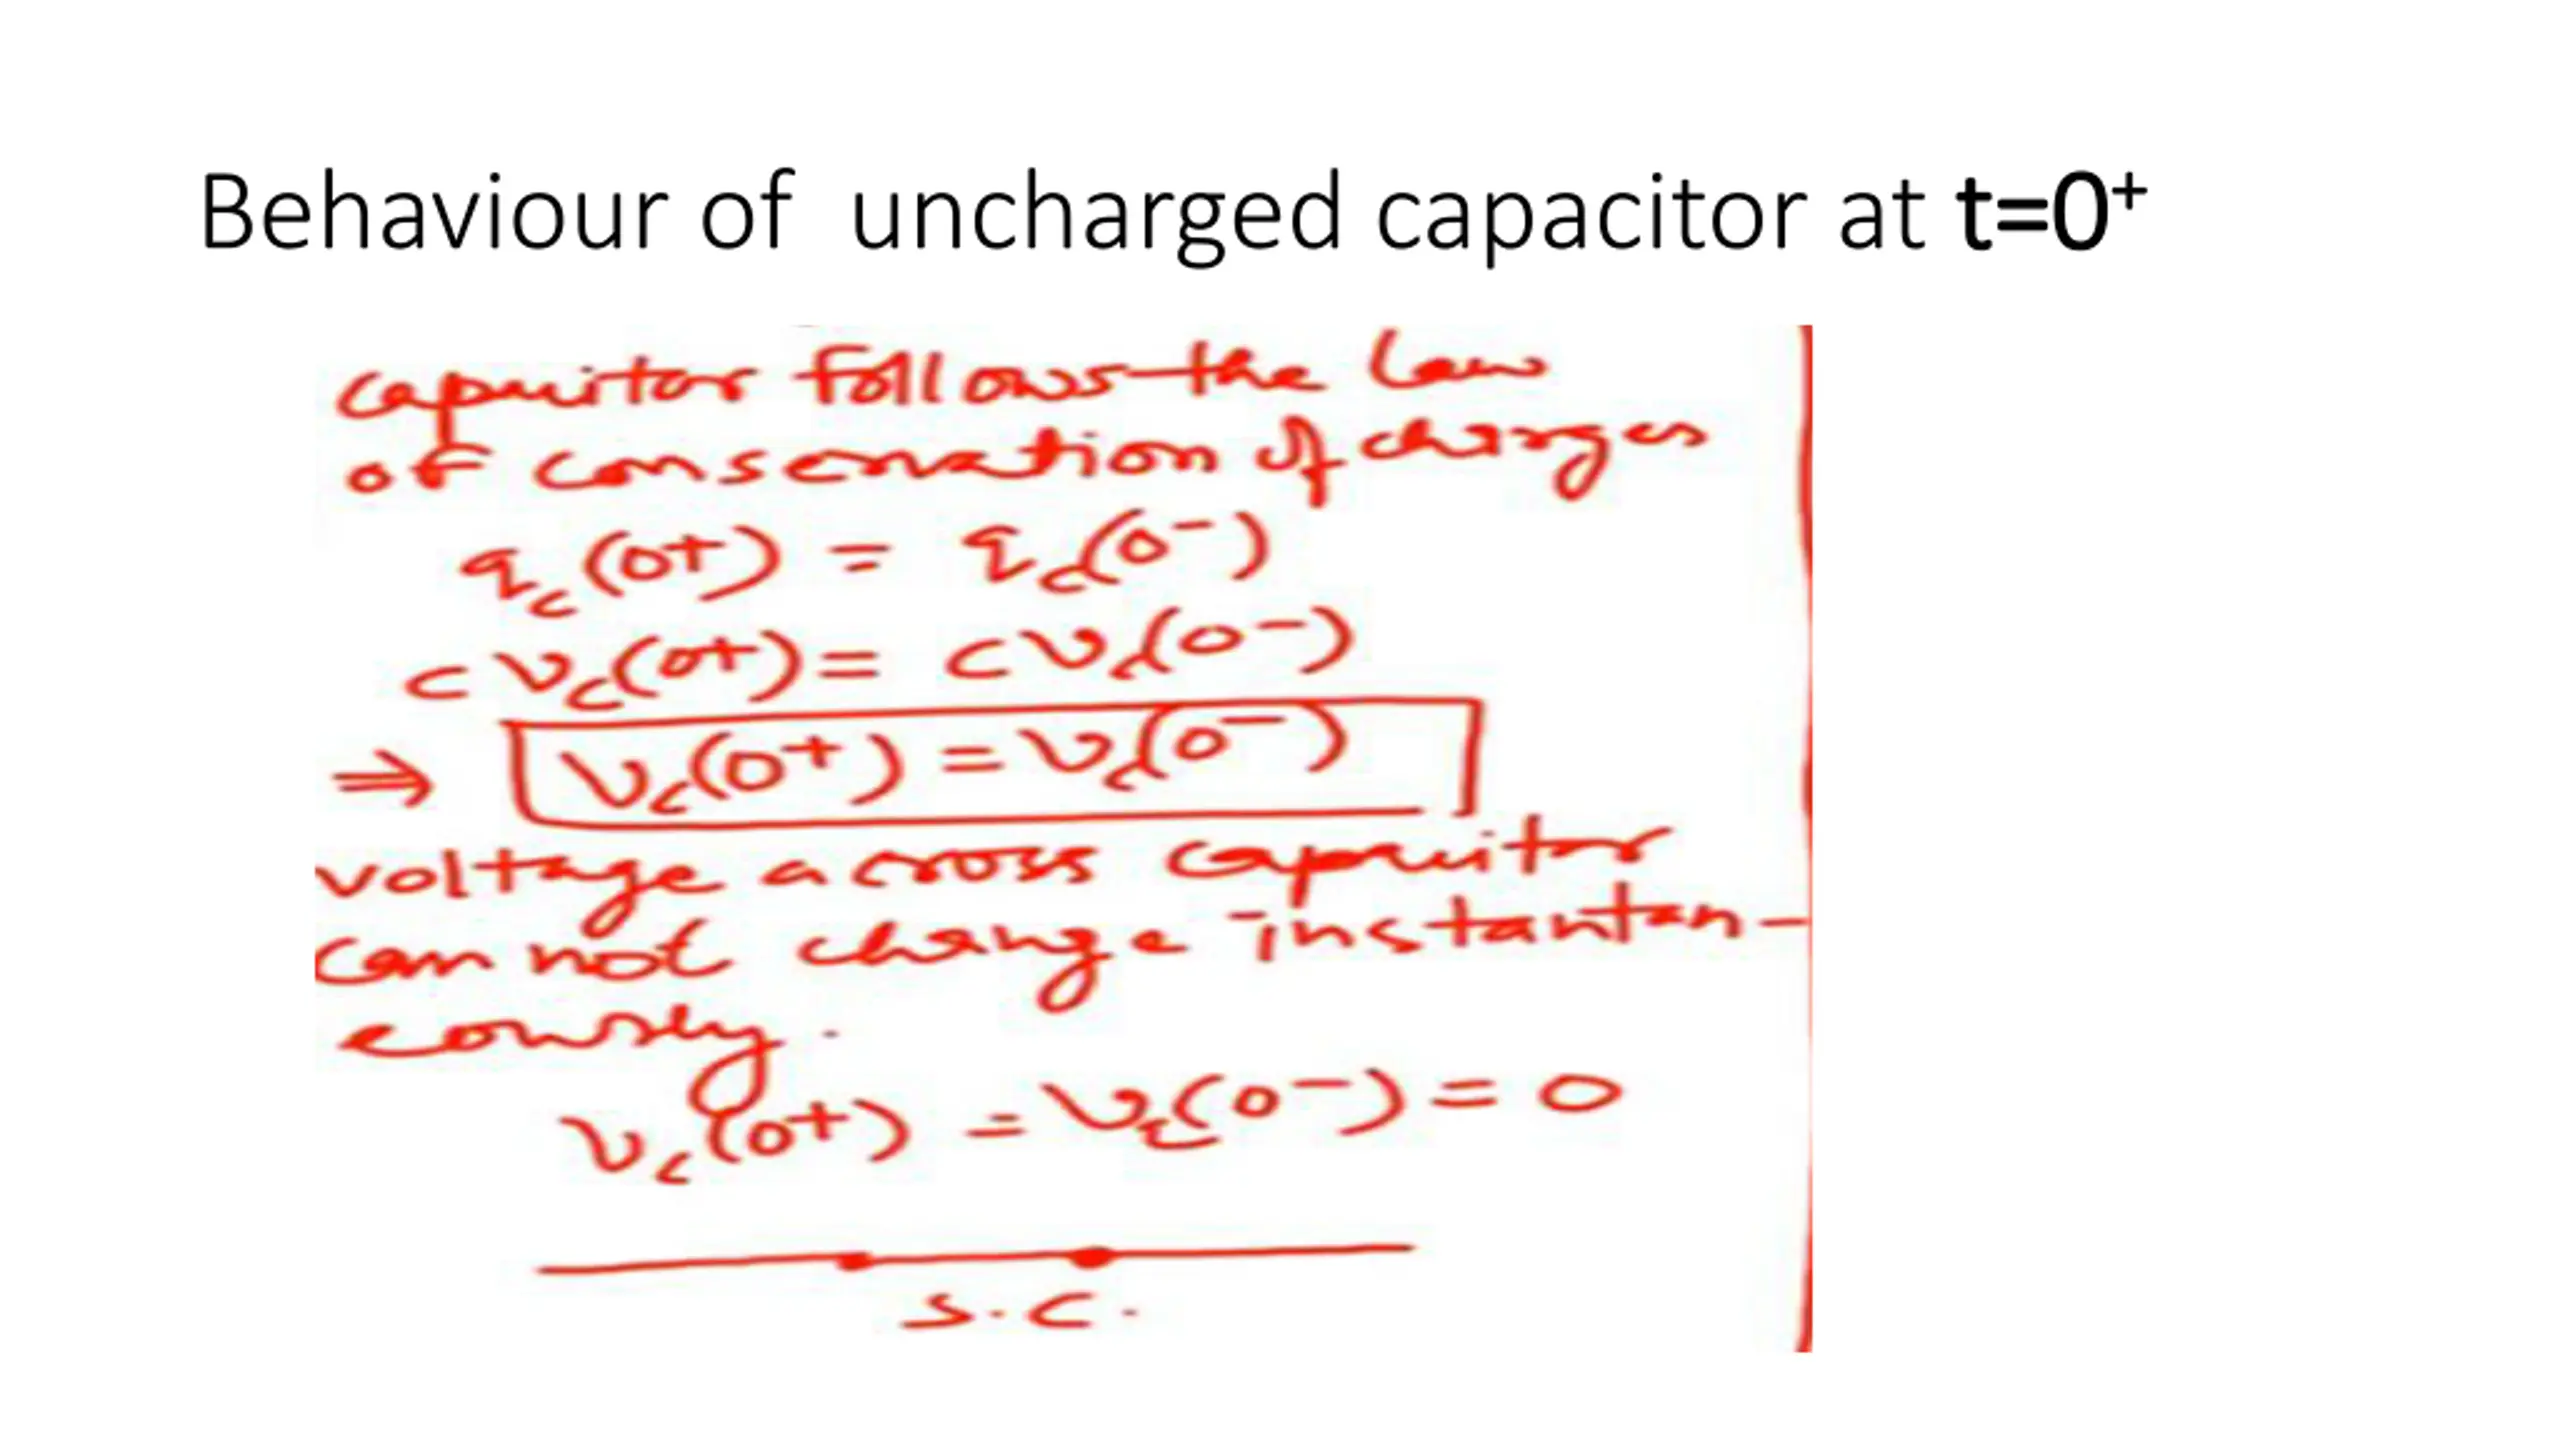 Behaviour of uncharged capacitor at t=0⁺
capacitor follows the law
of conservation of charges
q_c(0+) = q_c(0-)
C v_c(0+) = C v_c(0-)
⇒ v_c(0+) = v_c(0-)
voltage across capacitor
can not change instantan-
eously.
v_c(0+) = v_c(0-) = 0
S.C.